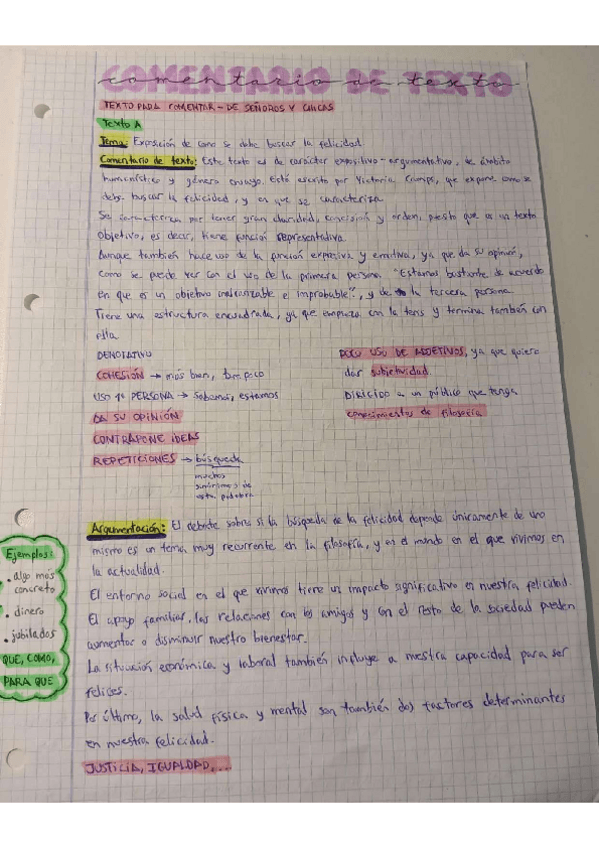 COMENTARIO DE TEXTO
comentario de texto
TEXTO PARA COMENTAR - DE SEÑOROS Y CHICAS
Texto A
Tema: Exposición de como se debe buscar la felicidad.
Comentario de texto: Este texto es de carácter expositivo-argumentativo, de ámbito
humanístico y género ensayo. Está escrito por Victoria Camps, que expone como se
debe buscar la felicidad, y en que se caracteriza.
Se caracteriza por tener gran claridad, concisión y orden, puesto que es un texto
objetivo, es decir, tiene función representativa.
Aunque también hace uso de la función expresiva y emotiva, ya que da su opinión,
como se puede ver con el uso de la primera persona. "Estamos bastante de acuerdo
en que es un objetivo inalcanzable e improbable", y de la tercera persona.
Tiene una estructura encuadrada, ya que empieza con la tesis y termina también con
ella.
DENOTATIVO
COHESIÓN → más bien, tampoco
USO 1ª PERSONA → sabemos, estamos
DA SU OPINIÓN
CONTRAPONE IDEAS
REPETICIONES → búsqueda
muchos
sinónimos de
esta palabra
POCO USO DE ADJETIVOS, ya que quiere
dar subjetividad.
DIRIGIDO a un público que tenga
conocimientos de filosofía
Argumentación: El debate sobre si la búsqueda de la felicidad depende únicamente de uno
mismo es un tema muy recurrente en la filosofía, y en el mundo en el que vivimos en
la actualidad.
El entorno social en el que vivimos tiene un impacto significativo en nuestra felicidad.
El apoyo familiar, las relaciones con los amigos y con el resto de la sociedad pueden
aumentar o disminuir nuestro bienestar.
La situación económica y laboral también influye a nuestra capacidad para ser
felices.
Por último, la salud física y mental son también dos factores determinantes
en nuestra felicidad.
JUSTICIA, IGUALDAD, ...
Ejemplos:
• algo más
concreto
• dinero
• jubilados
QUE, COMO,
PARA QUE